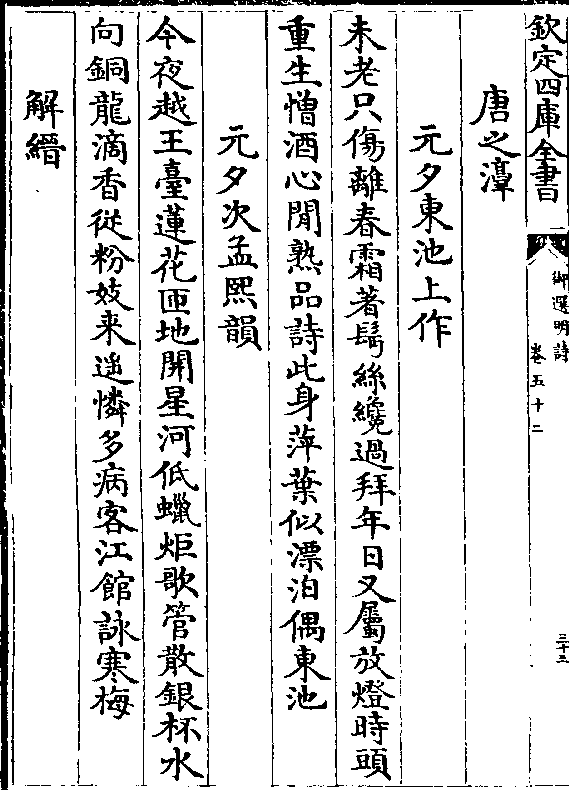 欽定四庫全書
御選明詩
卷五十二
三十三
唐之淳
元夕東池上作
未老只傷離春霜著鬂絲纔過拜年日又屬放燈時頭
重生憎酒心閒熟品詩此身萍葉似漂泊偶東池
元夕次孟熈韻
今夜越王臺蓮花匝地開星河低蠟炬歌管散銀杯水
向銅龍滴香從粉妓来遥憐多病客江館詠寒梅
解縉